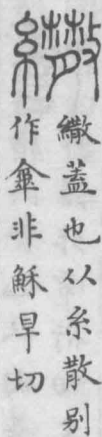 繖
繖蓋也从糸散别
作傘非穌旱切